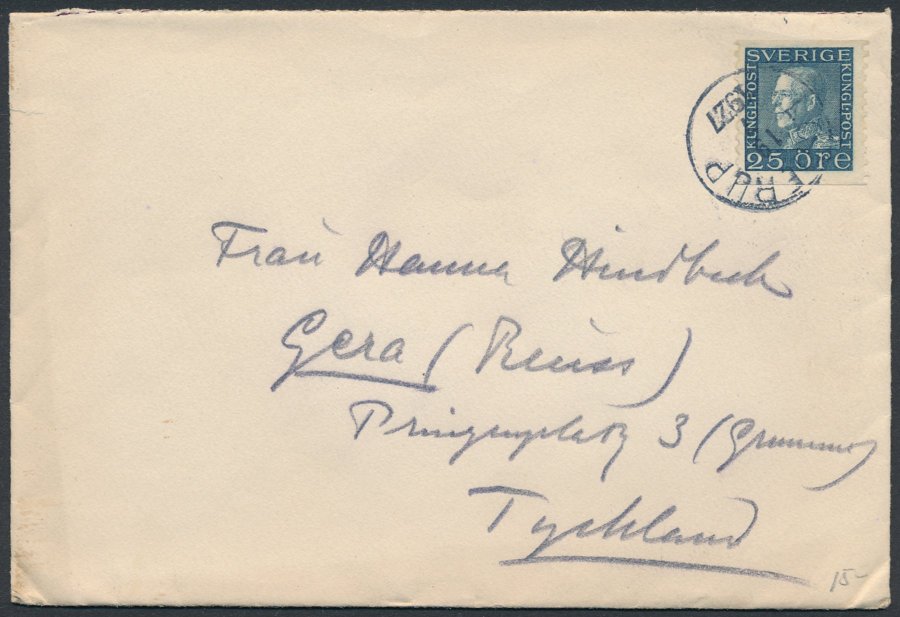 SVERIGE
KUNGL·POST
KUNGL·POST
25 öre
1927
ERUP
Frau Hanna Hindbeck
Gera (Reuss)
Prinzenplatz 3 (Grumme)
Tyskland
15-